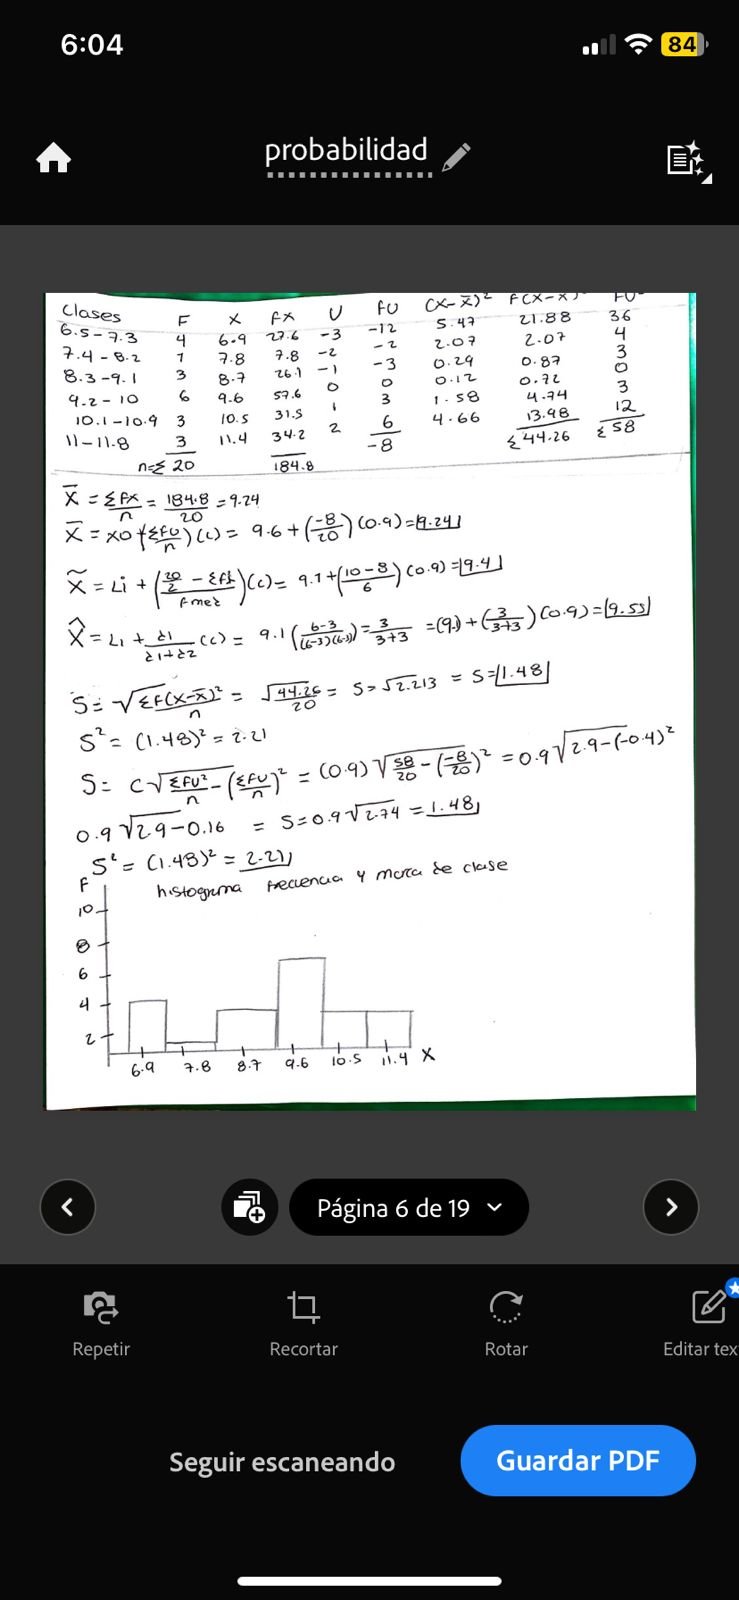 6:04
84
probabilidad
Clases F X FX U FU (X-X̄)² F(X-X̄) FU²
6.5-7.3 4 6.9 27.6 -3 -12 5.47 21.88 36
7.4-8.2 1 7.8 7.8 -2 -2 2.07 2.07 4
8.3-9.1 3 8.7 26.1 -1 -3 0.29 0.87 3
9.2-10 6 9.6 57.6 0 0 0.12 0.72 0
10.1-10.9 3 10.5 31.5 1 3 1.58 4.74 3
11-11.8 3 11.4 34.2 2 6 4.66 13.98 12
n=Σ 20 184.8 -8 Σ44.26 Σ58
X̄ = ΣFX/n = 184.8/20 = 9.24
X̄ = XO+(ΣFU/n)(C) = 9.6+(-8/20)(0.9)=9.24
X̃ = Li + (20/2 - Σfi/Fmed)(C)= 9.1+(10-8/6)(0.9)=9.4
X̂ = Li + Δ1/Δ1+Δ2 (C) = 9.1(6-3/(6-3)(6-3))=3/3+3 =(9.1)+(3/3+3)(0.9)=9.55
S=√ΣF(X-X̄)²/n = √44.26/20 = S=√2.213 = S=1.48
S² = (1.48)² = 2.21
S= C√ΣFU²/n-(ΣFU/n)² = (0.9)√58/20-(-8/20)² = 0.9√2.9-(-0.4)²
0.9√2.9-0.16 = S=0.9√2.74 = 1.48
S² = (1.48)² = 2.21
histograma frecuencia y marca de clase
F
10
8
6
4
2
6.9 7.8 8.7 9.6 10.5 11.4 X
Página 6 de 19
Repetir Recortar Rotar Editar tex
Seguir escaneando Guardar PDF